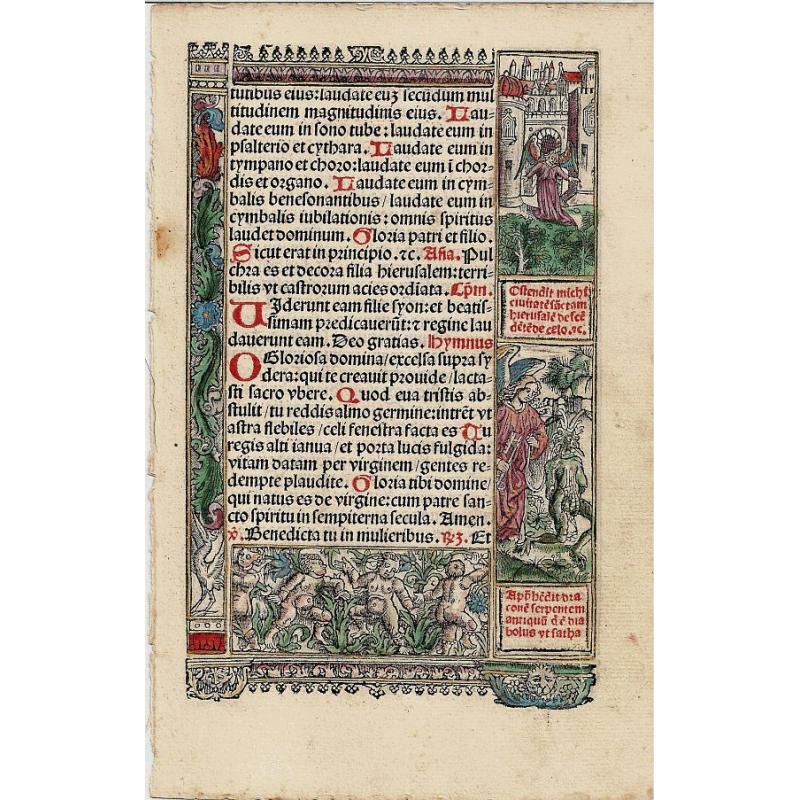 tutibus eius:laudate euʒ secūdum mul
titudinem magnitudinis eius. Lau-
date eum in sono tube:laudate eum in
psalterio et cythara. Laudate eum in
tympano et choro:laudate eum ī chor-
dis et organo. Laudate eum in cym-
balis benesonantibus/laudate eum in
cymbalis iubilationis:omnis spiritus
laudet dominum. Gloria patri et filio.
Sicut erat in principio.⁊c. Aña. Pul
chra es et decora filia hierusalem:terri-
bilis vt castrorum acies ordīata. Cp̄m.
UIderunt eam filie syon:et beatis-
simam predicauerūt:⁊ regine lau
dauerunt eam. Deo gratias. Hymnus
O Gloriosa domina/excelsa supra sy
dera:qui te creauit prouide/lacta-
sti sacro vbere. Quod eua tristis ab-
stulit/tu reddis almo germine:intrēt vt
astra flebiles/celi fenestra facta es Tu
regis alti ianua/et porta lucis fulgida:
vitam datam per virginem/gentes re-
dempte plaudite. Gloria tibi domine/
qui natus es de virgine:cum patre san-
cto spiritu in sempiterna secula. Amen.
℣. Benedicta tu in mulieribus. ℞. Et
Ostendit michi
ciuitatē sāctam
hierusalē descē
dētē de celo.⁊c.
Apꝓhēdit dra
conē serpentem
antiquū
bolus vt satha